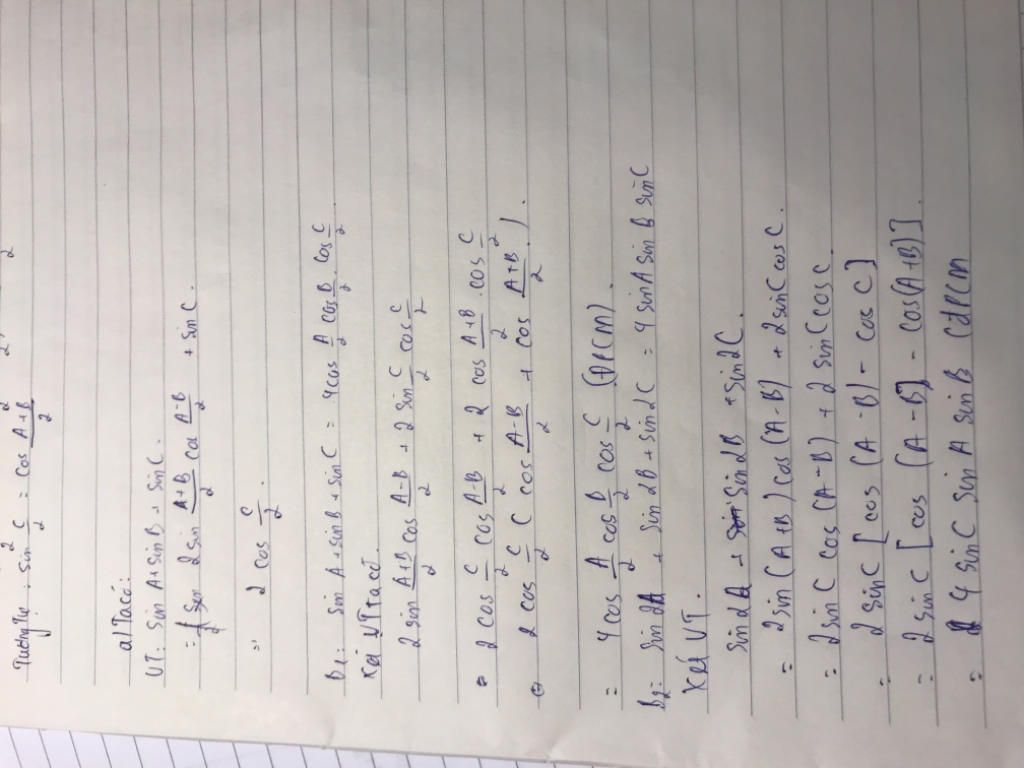 Tương tự: sin C/2 = cos (A+B)/2
a) Ta có:
VT: sin A + sin B + sin C.
= 2 sin (A+B)/2 cos (A-B)/2 + sin C.
= 2 cos C/2
B1: sin A + sin B + sin C = 4 cos A/2 cos B/2 cos C/2
Xét VT ta có
2 sin (A+B)/2 cos (A-B)/2 + 2 sin C/2 cos C/2
= 2 cos C/2 cos (A-B)/2 + 2 cos (A+B)/2 . cos C/2
2 cos C/2 ( cos (A-B)/2 + cos (A+B)/2 ).
= 4 cos A/2 cos B/2 cos C/2 (ĐPCM).
B2: sin 2A + sin 2B + sin 2C = 4 sin A sin B sin C
Xét VT.
sin 2A + sin 2B + sin 2C.
= 2 sin (A+B) cos (A-B) + 2 sin C cos C.
= 2 sin C cos (A-B) + 2 sin C cos C.
= 2 sin C [cos (A-B) - cos C]
= 2 sin C [cos (A-B) - cos (A+B)].
= 4 sin C sin A sin B (đPCM